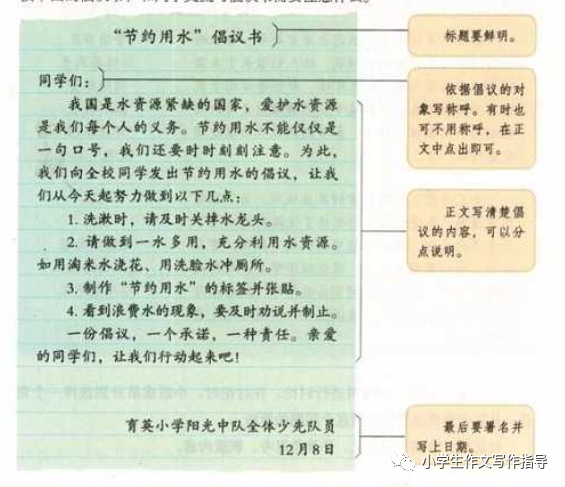 “节约用水”倡议书
标题要鲜明。
同学们：
依据倡议的对
象写称呼。有时也
可不用称呼，在正
文中点出即可。
我国是水资源紧缺的国家，爱护水资源
是我们每个人的义务。节约用水不能仅仅是
一句口号，我们还要时时刻刻注意。为此，
我们向全校同学发出节约用水的倡议，让我
们从今天起努力做到以下几点：
1. 洗漱时，请及时关掉水龙头。
2. 请做到一水多用，充分利用水资源。
如用淘米水浇花、用洗脸水冲厕所。
3. 制作“节约用水”的标签并张贴。
4. 看到浪费水的现象，要及时劝说并制止。
一份倡议，一个承诺，一种责任。亲爱
的同学们，让我们行动起来吧！
正文写清楚倡
议的内容，可以分
点说明。
育英小学阳光中队全体少先队员
12月8日
最后要署名并
写上日期。
小学生作文写作指导